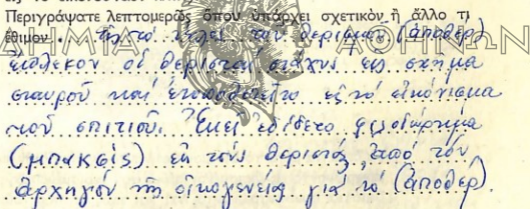 Περιγράψατε λεπτομερῶς ὅπου ὑπάρχει σχετικὸν ἢ ἄλλο τι
ἔθιμον. Εἰς τὸ τέλος τοῦ θερισμοῦ (ἀποθερ)
ἔπλεκον οἱ θερισταὶ στάχυς εἰς σχῆμα
σταυροῦ καὶ ἐτοποθετεῖτο εἰς τὸ εἰκόνισμα
τοῦ σπιτιοῦ. Ἐκεῖ ἐδίδετο φιλοδώρημα
(μπαξίς) εἰς τοὺς θεριστάς ἀπὸ τὸν
ἀρχηγόν τῆς οἰκογενείας γιὰ τὸ (ἀποθερ).
ΔΗΜΙΑ ΑΘΗΝΩΝ